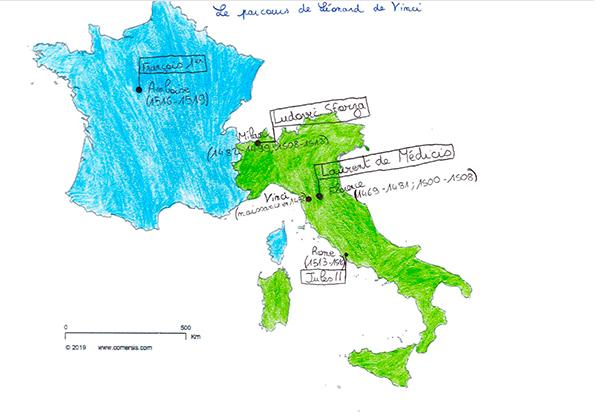 Le parcours de Léonard de Vinci
François 1er
Amboise
(1516-1519)
Ludovic Sforza
Milan
(1482-1499; 1508-1513)
Laurent de Médicis
Florence
(1469-1481; 1500-1508)
Vinci
(naissance en
Rome
Jules II
0 500
Km
© 2019 www.comersis.com